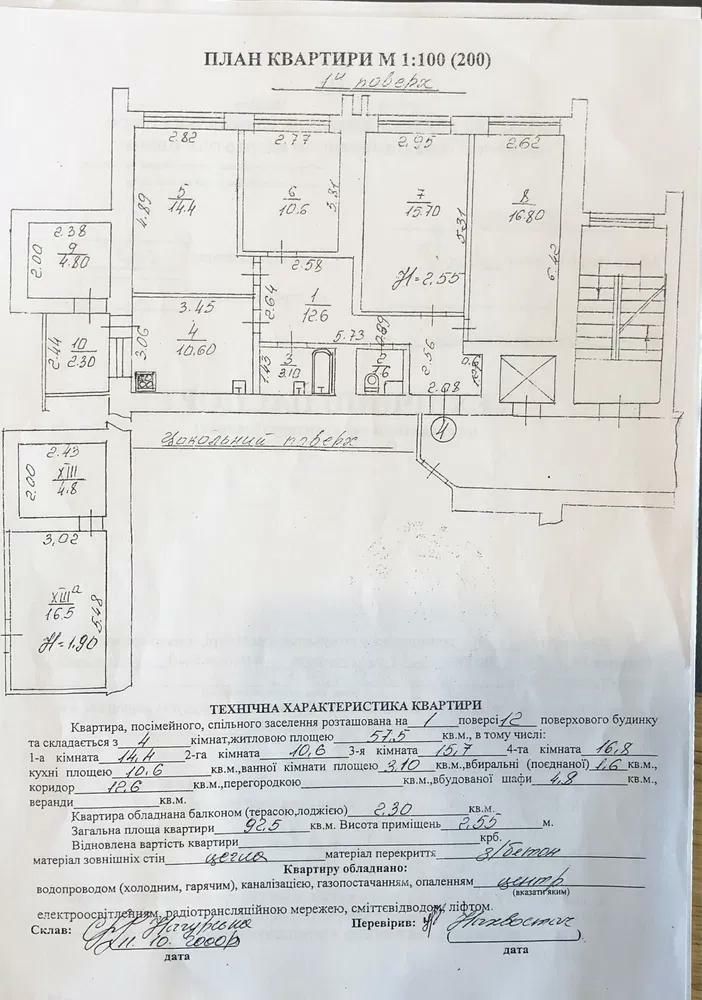 ПЛАН КВАРТИРИ М 1:100 (200)
1й поверх
2.82
2.77
2.95
2.62
4.89
5
14.4
6
10.6
5.31
7
15.70
5.31
8
16.80
6.42
2.38
9
2.00
4.80
2.58
H=2.55
2.64
1
12.6
3.45
4
10.60
3.06
5.73
0.89
2.44
10
2.30
1.43
3
3.10
2
1.6
2.56
2.08
4
Цокольний поверх
2.43
XIII
4.8
2.00
3,02
XIIIа
16.5
5.48
H=1.90
ТЕХНІЧНА ХАРАКТЕРИСТИКА КВАРТИРИ
Квартира, посімейного, спільного заселення розташована на 1 поверсі 12 поверхового будинку
та складається з 4 кімнат,житловою площею 57,5 кв.м., в тому числі:
1-а кімната 14,4 2-га кімната 10,6 3-я кімната 15,7 4-та кімната 16,8
кухні площею 10,6 кв.м.,ванної кімнати площею 3,10 кв.м.,вбиральні (поєднаної) 1,6 кв.м.,
коридор 12,6 кв.м.,перегородкою кв.м.,вбудованої шафи 4,8 кв.м.,
веранди кв.м.
Квартира обладнана балконом (терасою,лоджією) 2.30 кв.м.
Загальна площа квартири 92,5 кв.м. Висота приміщень 2,55 м.
Відновлена вартість квартири крб.
матеріал зовнішніх стін цегла матеріал перекриття з/бетон
Квартиру обладнано:
водопроводом (холодним, гарячим), каналізацією, газопостачанням, опаленням центр
(вказати яким)
електроосвітленням, радіотрансляційною мережею, сміттєвідводом, ліфтом.
Склав: Перевірив:
11.10.2000р
дата дата